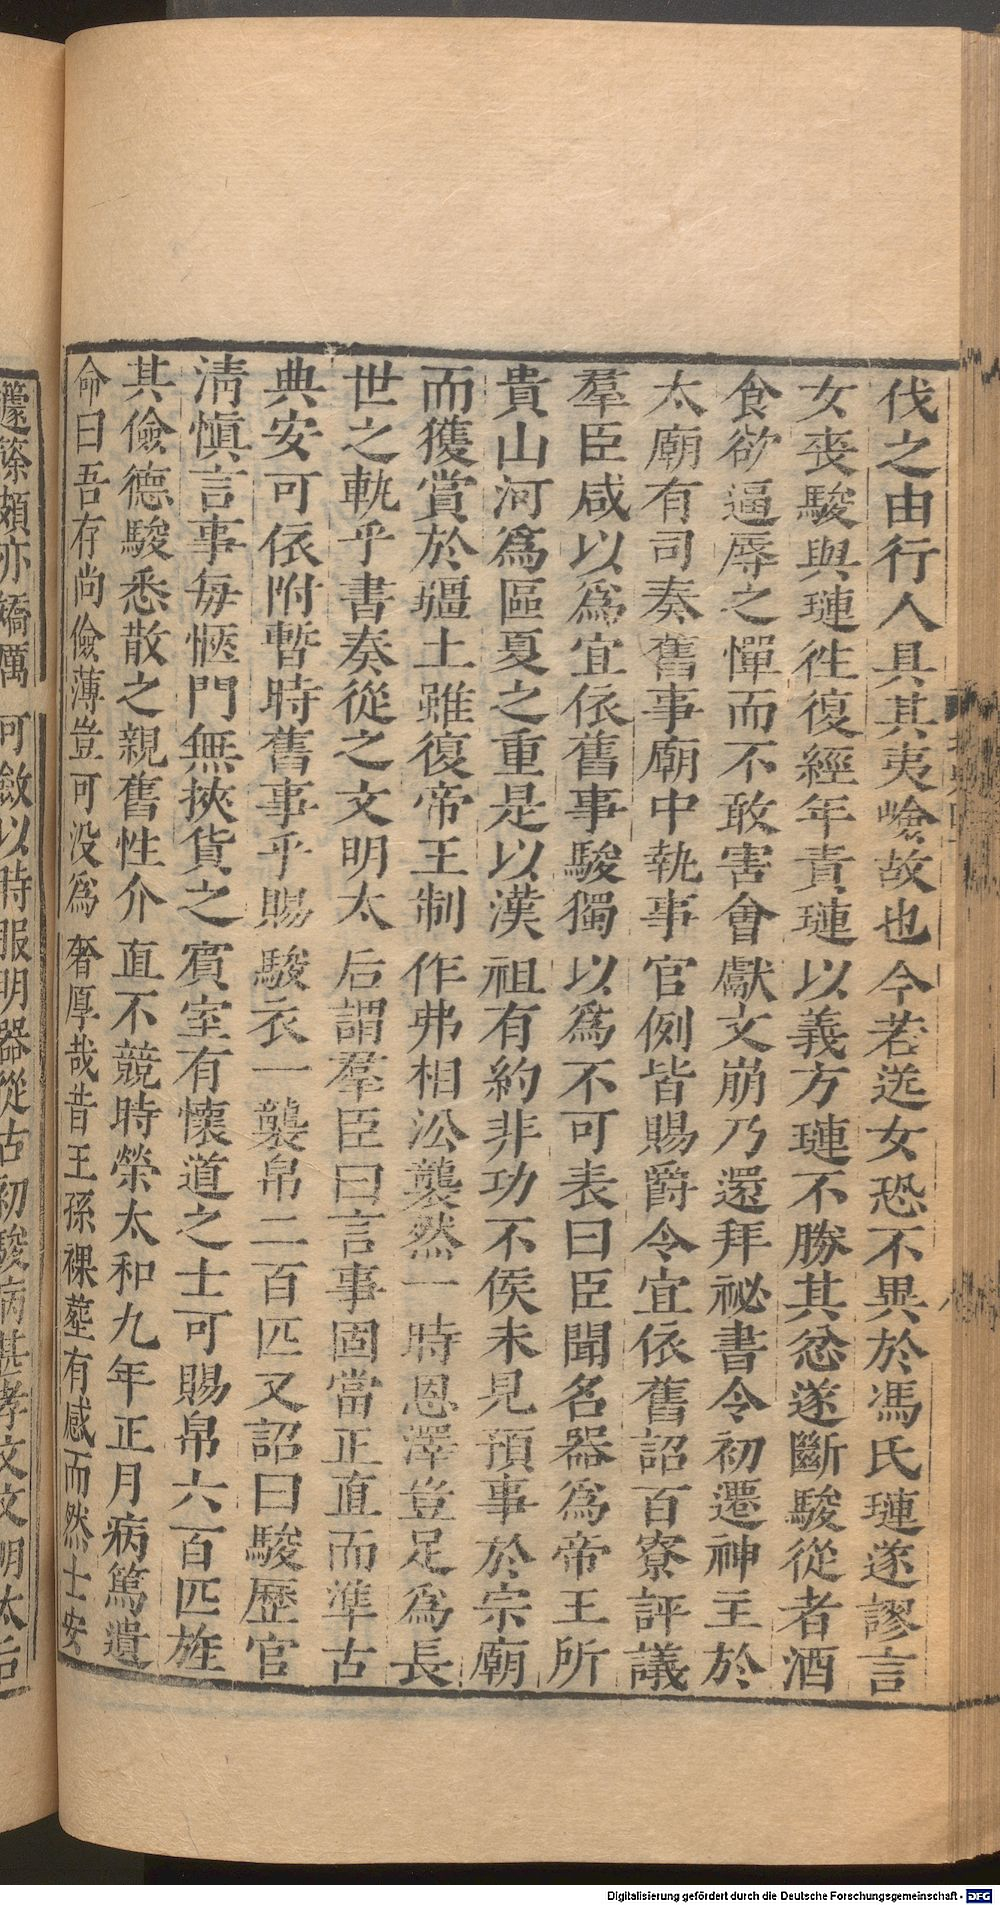 伐之由行人具其夷嶮故也今若送女恐不異於馮氏璉遂謬言
女喪駿與璉往復經年責璉以義方璉不勝其忿遂斷駿從者酒
食欲逼辱之憚而不敢害會獻文崩乃還拜祕書令初遷神主於
太廟有司奏舊事廟中執事官例皆賜爵令宜依舊詔百寮評議
羣臣咸以爲宜依舊事駿獨以爲不可表曰臣聞名器爲帝王所
貴山河爲區夏之重是以漢祖有約非功不侯未見預事於宗廟
而獲賞於疆土雖復帝王制作弗相㳂襲然一時恩澤豈足爲長
世之軌乎書奏從之文明太后謂羣臣曰言事固當正直而準古
典安可依附暫時舊事乎賜駿衣一襲帛二百匹又詔曰駿歷官
淸愼言事每愜門無挾貨之賓室有懷道之士可賜帛六百匹旌
其儉德駿悉散之親舊性介直不競時榮太和九年正月病篤遺
命曰吾存尚儉薄豈可没爲奢厚哉昔王孫裸葬有感而然士安
籧篨頗亦矯厲 可斂以時服明器從古初駿病甚孝文文明太后
Digitalisierung gefördert durch die Deutsche Forschungsgemeinschaft - DFG